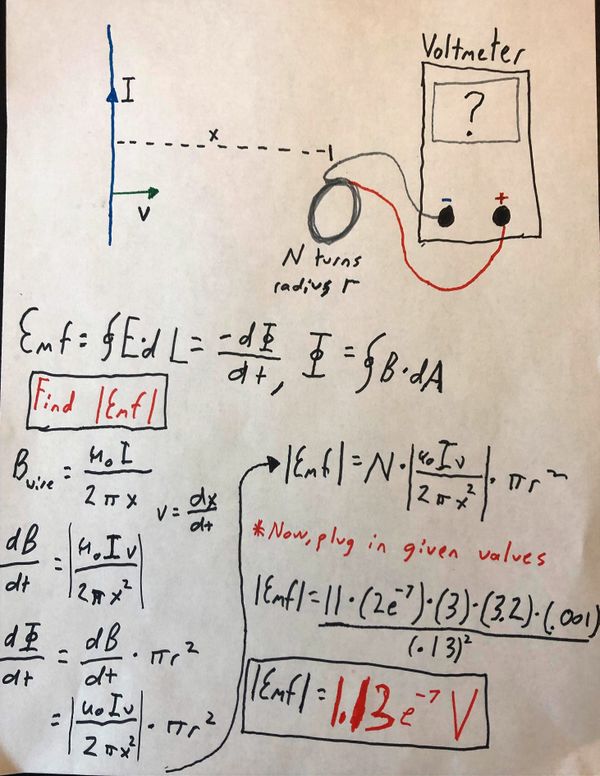 Voltmeter
?
I
x
v
- +
N turns
radius r
Emf = ∮E·dL = -dΦ/dt, Φ = ∮B·dA
Find |Emf|
B wire = μ₀I/2πx
v = dx/dt
dB/dt = |μ₀Iv/2πx²|
dΦ/dt = dB/dt · πr²
= |μ₀Iv/2πx²| · πr²
|Emf| = N · |μ₀Iv/2πx²| · πr²
*Now, plug in given values
|Emf| = 11·(2e⁻⁷)·(3)·(3.2)·(.001)/(.13)²
|Emf| = 1.13e⁻⁷ V